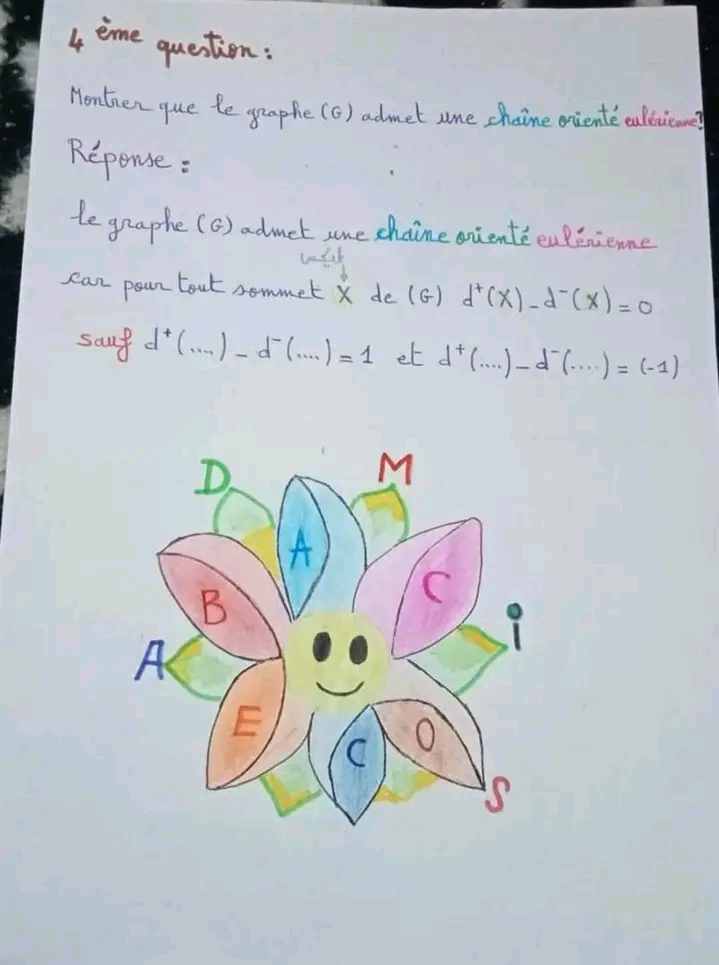 4 ème question :
Montrer que le graphe (G) admet une chaîne orienté eulérienne?
Réponse :
le graphe (G) admet une chaîne orienté eulérienne
إيكس
car pour tout sommet X de (G) d⁺(X) - d⁻(X) = 0
sauf d⁺(....) - d⁻(....) = 1 et d⁺(....) - d⁻(....) = (-1)
D M
A
B C
i
A
E C O
S